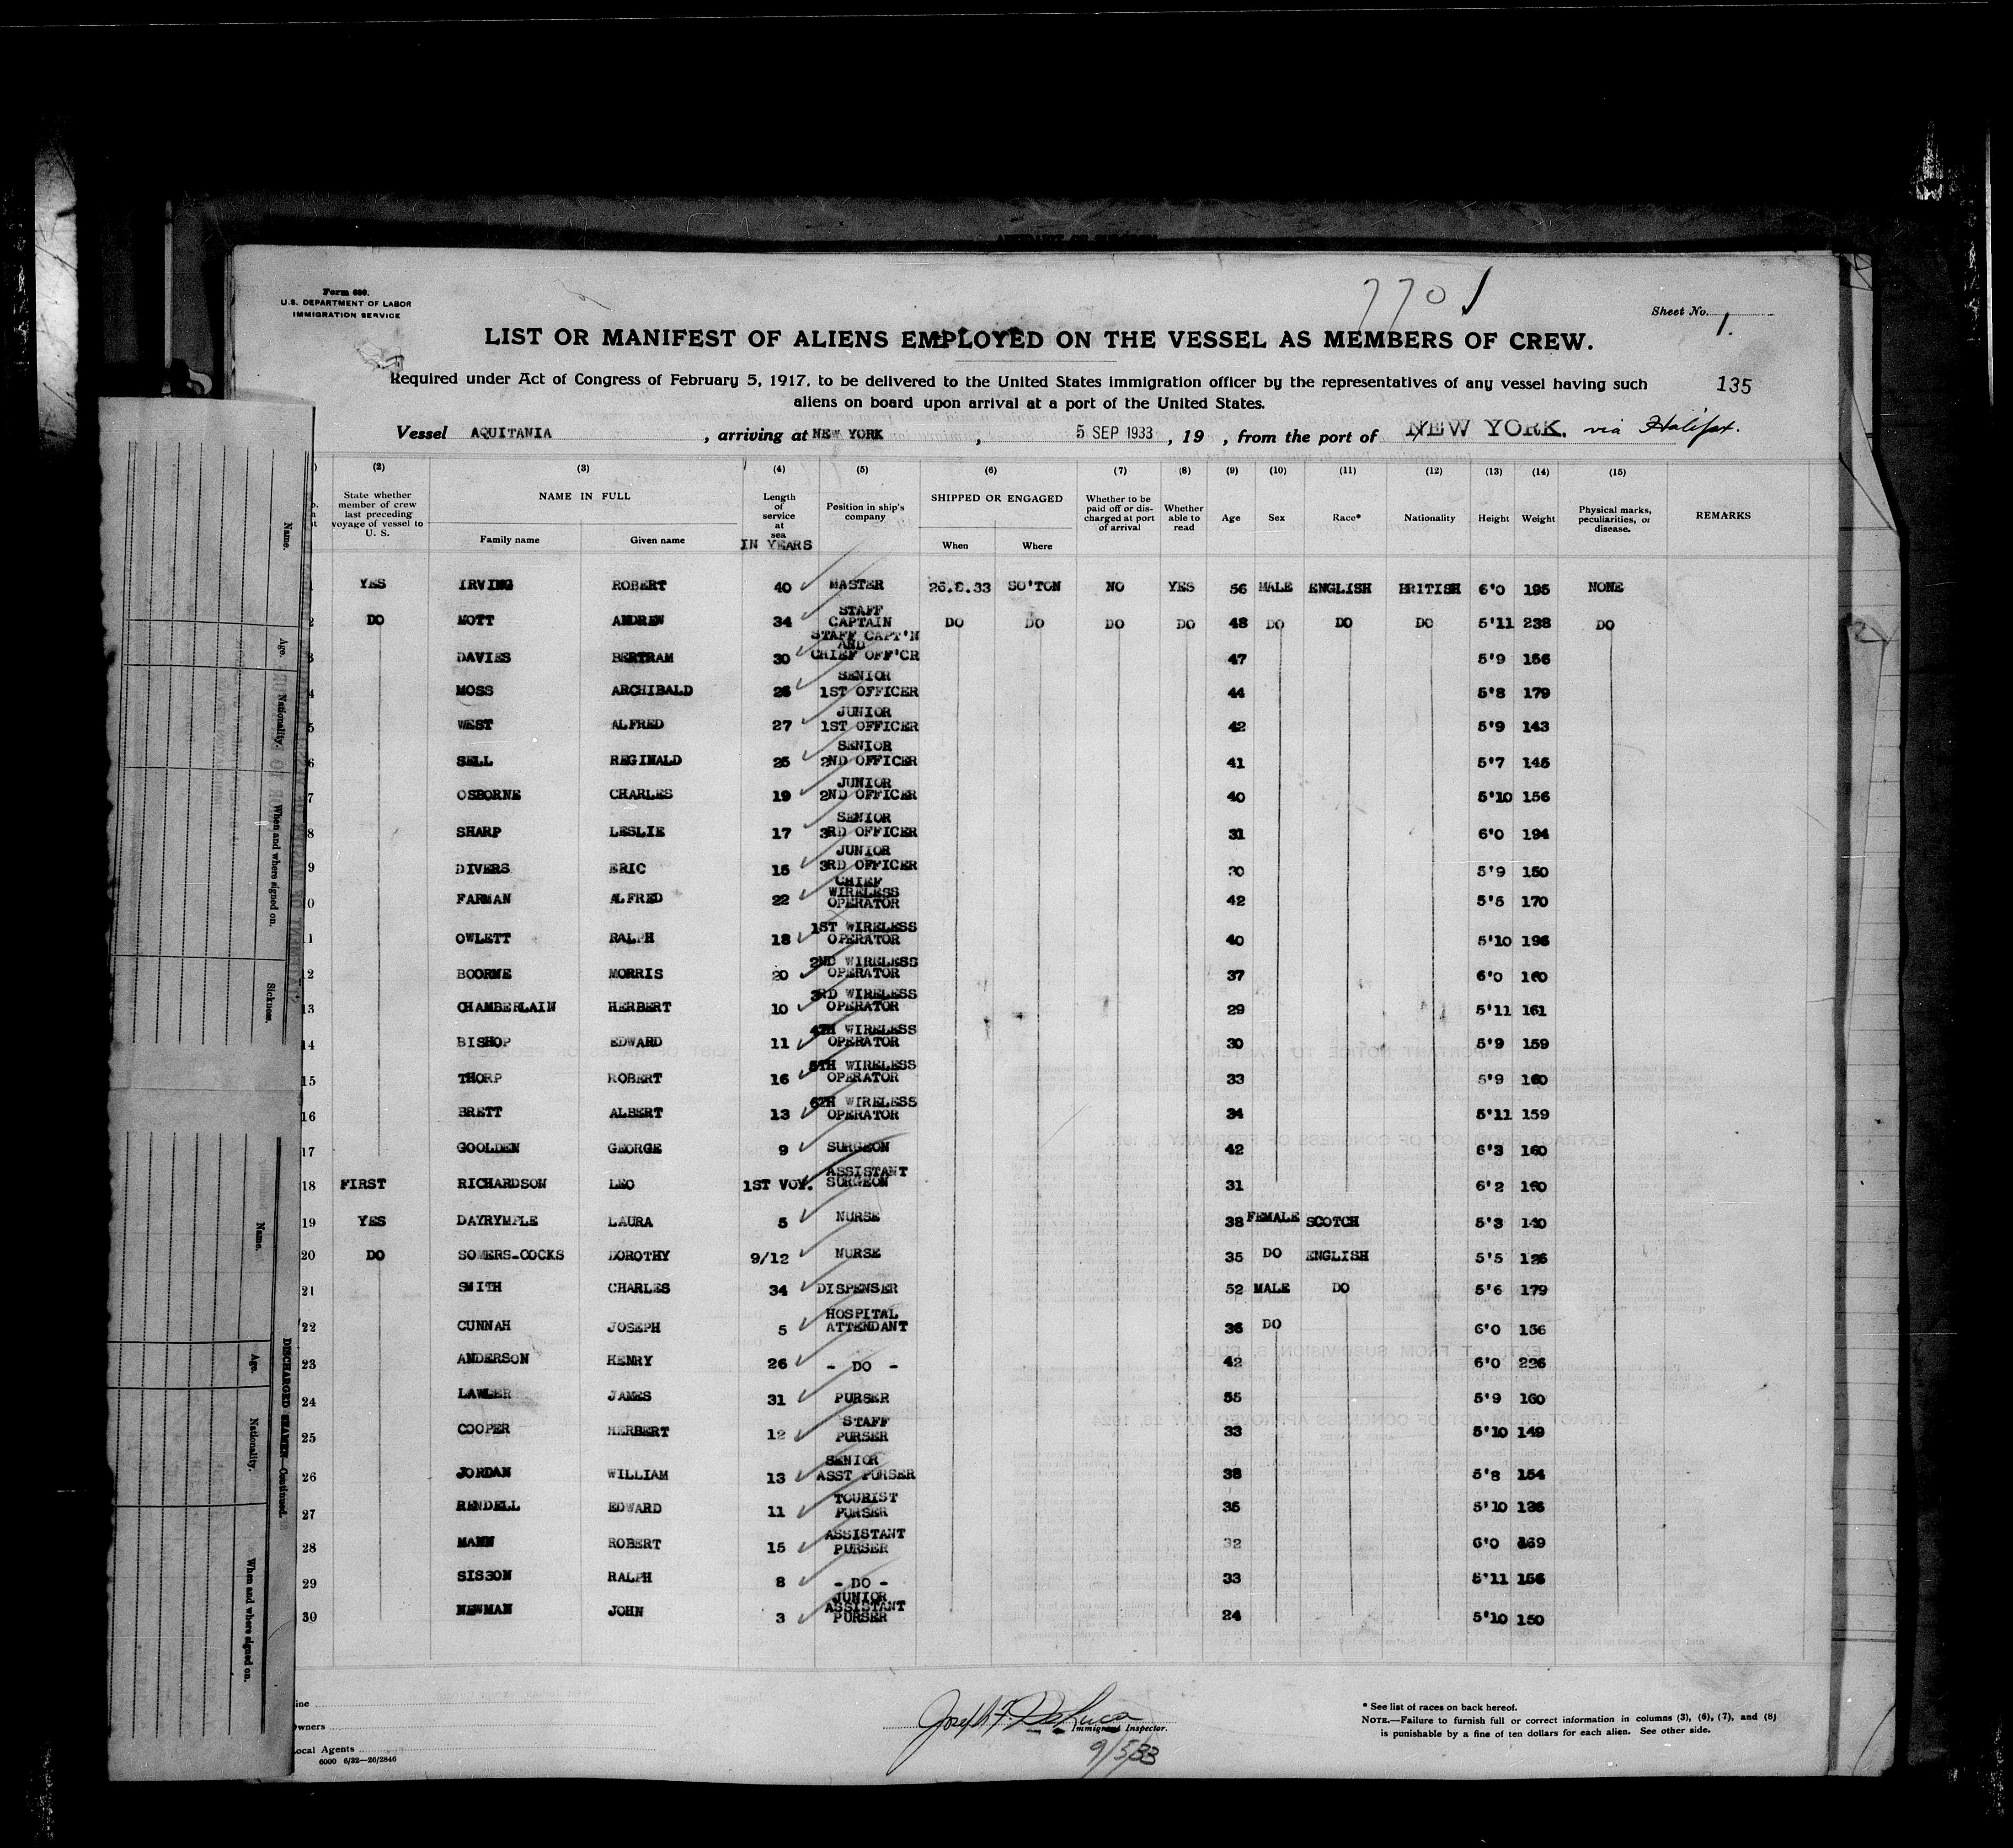 Form 680.
U.S. DEPARTMENT OF LABOR
IMMIGRATION SERVICE
770
Sheet No. 1.
LIST OR MANIFEST OF ALIENS EMPLOYED ON THE VESSEL AS MEMBERS OF CREW.
Required under Act of Congress of February 5, 1917, to be delivered to the United States immigration officer by the representatives of any vessel having such
135
aliens on board upon arrival at a port of the United States.
Vessel AQUITANIA , arriving at NEW YORK , 5 SEP 1933 , 19 , from the port of NEW YORK. via Halifax.
(2) (3) (4) (5) (6) (7) (8) (9) (10) (11) (12) (13) (14) (15)
State whether member of crew last preceding voyage of vessel to U. S.
NAME IN FULL
Family name Given name
Length of service at sea IN YEARS
Position in ship's company
SHIPPED OR ENGAGED
When Where
Whether to be paid off or discharged at port of arrival
Whether able to read
Age Sex Race* Nationality Height Weight
Physical marks, peculiarities, or disease.
REMARKS
1 YES IRVING ROBERT 40 MASTER 26.8.33 SO'TON NO YES 56 MALE ENGLISH BRITISH 6'0 195 NONE
2 DO MOTT ANDREW 34 STAFF CAPTAIN DO DO DO DO 48 DO DO DO 5'11 238 DO
3 DAVIES BERTRAM 30 STAFF CAPT'N AND CHIEF OFF'CR 47 5'9 156
4 MOSS ARCHIBALD 26 SENIOR 1ST OFFICER 44 5'8 179
5 WEST ALFRED 27 JUNIOR 1ST OFFICER 42 5'9 143
6 SELL REGINALD 25 SENIOR 2ND OFFICER 41 5'7 145
7 OSBORNE CHARLES 19 JUNIOR 2ND OFFICER 40 5'10 156
8 SHARP LESLIE 17 SENIOR 3RD OFFICER 31 6'0 194
9 DIVERS ERIC 15 JUNIOR 3RD OFFICER 30 5'9 150
10 FARMAN ALFRED 22 CHIEF WIRELESS OPERATOR 42 5'5 170
11 OWLETT RALPH 18 1ST WIRELESS OPERATOR 40 5'10 196
12 BOORNE MORRIS 20 2ND WIRELESS OPERATOR 37 6'0 160
13 CHAMBERLAIN HERBERT 10 3RD WIRELESS OPERATOR 29 5'11 161
14 BISHOP EDWARD 11 4TH WIRELESS OPERATOR 30 5'9 159
15 THORP ROBERT 16 5TH WIRELESS OPERATOR 33 5'9 160
16 BRETT ALBERT 13 6TH WIRELESS OPERATOR 34 5'11 159
17 GOOLDEN GEORGE 9 SURGEON 42 6'3 160
18 FIRST RICHARDSON LEO 1ST VOY. ASSISTANT SURGEON 31 6'2 160
19 YES DAYRYMPLE LAURA 5 NURSE 38 FEMALE SCOTCH 5'3 140
20 DO SOMERS-COCKS DOROTHY 9/12 NURSE 35 DO ENGLISH 5'5 126
21 SMITH CHARLES 34 DISPENSER 52 MALE DO 5'6 179
22 CUNNAH JOSEPH 5 HOSPITAL ATTENDANT 36 DO 6'0 156
23 ANDERSON HENRY 26 - DO - 42 6'0 226
24 LAWLER JAMES 31 PURSER 55 5'9 160
25 COOPER HERBERT 12 STAFF PURSER 33 5'10 149
26 JORDAN WILLIAM 13 SENIOR ASST PURSER 38 5'8 154
27 RENDELL EDWARD 11 TOURIST PURSER 35 5'10 136
28 MANN ROBERT 15 ASSISTANT PURSER 32 6'0 169
29 SISSON RALPH 8 - DO - 33 5'11 156
30 NEWMAN JOHN 3 JUNIOR ASSISTANT PURSER 24 5'10 150
Line
Owners
Local Agents
6000 6/32—26/2846
Joseph F. DeLuca
Immigrant Inspector.
9/5/33
* See list of races on back hereof.
NOTE.—Failure to furnish full or correct information in columns (3), (6), (7), and (8)
is punishable by a fine of ten dollars for each alien. See other side.
Name.
Age.
Nationality.
When and where signed on.
Sickness.
DISCHARGED SEAMEN—Continued.
Name.
Age.
Nationality.
When and where signed on.